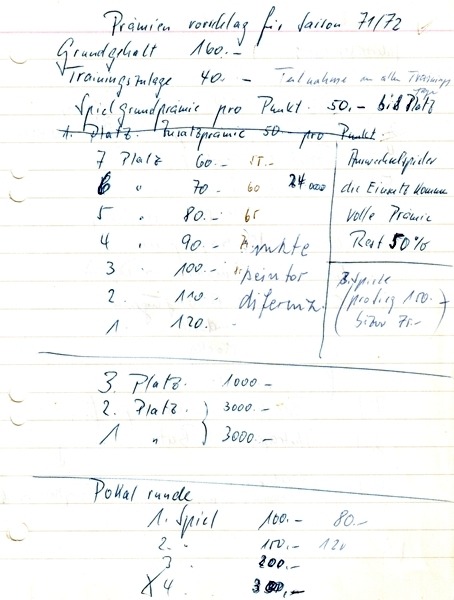 Prämien vorschlag für Saison 71/72
Grundgehalt 160.-
Trainingszulage 40.- Teilnahme an allen Trainings
Spielgrundprämie pro Punkt. 50.- bis Platz
1. Platz Zusatzprämie 50 pro Punkt.
7 Platz 60.- 55.-
6 " 70.- 60 24000
5 " 80.- 65
4 " 90.-
3 " 100.-
2. " 110.-
1 120.-
Punkte
differenz.
Auswechselspieler
die Einsatz kommen
volle Prämie
Rest 50%
150.-
75.-
3. Platz. 1000-
2. Platz. ) 3000.-
1 " ) 3000.-
Pokal runde
1. Spiel 100.- 80.-
2. " 150.- 120
3 200.-
X 4 300.-